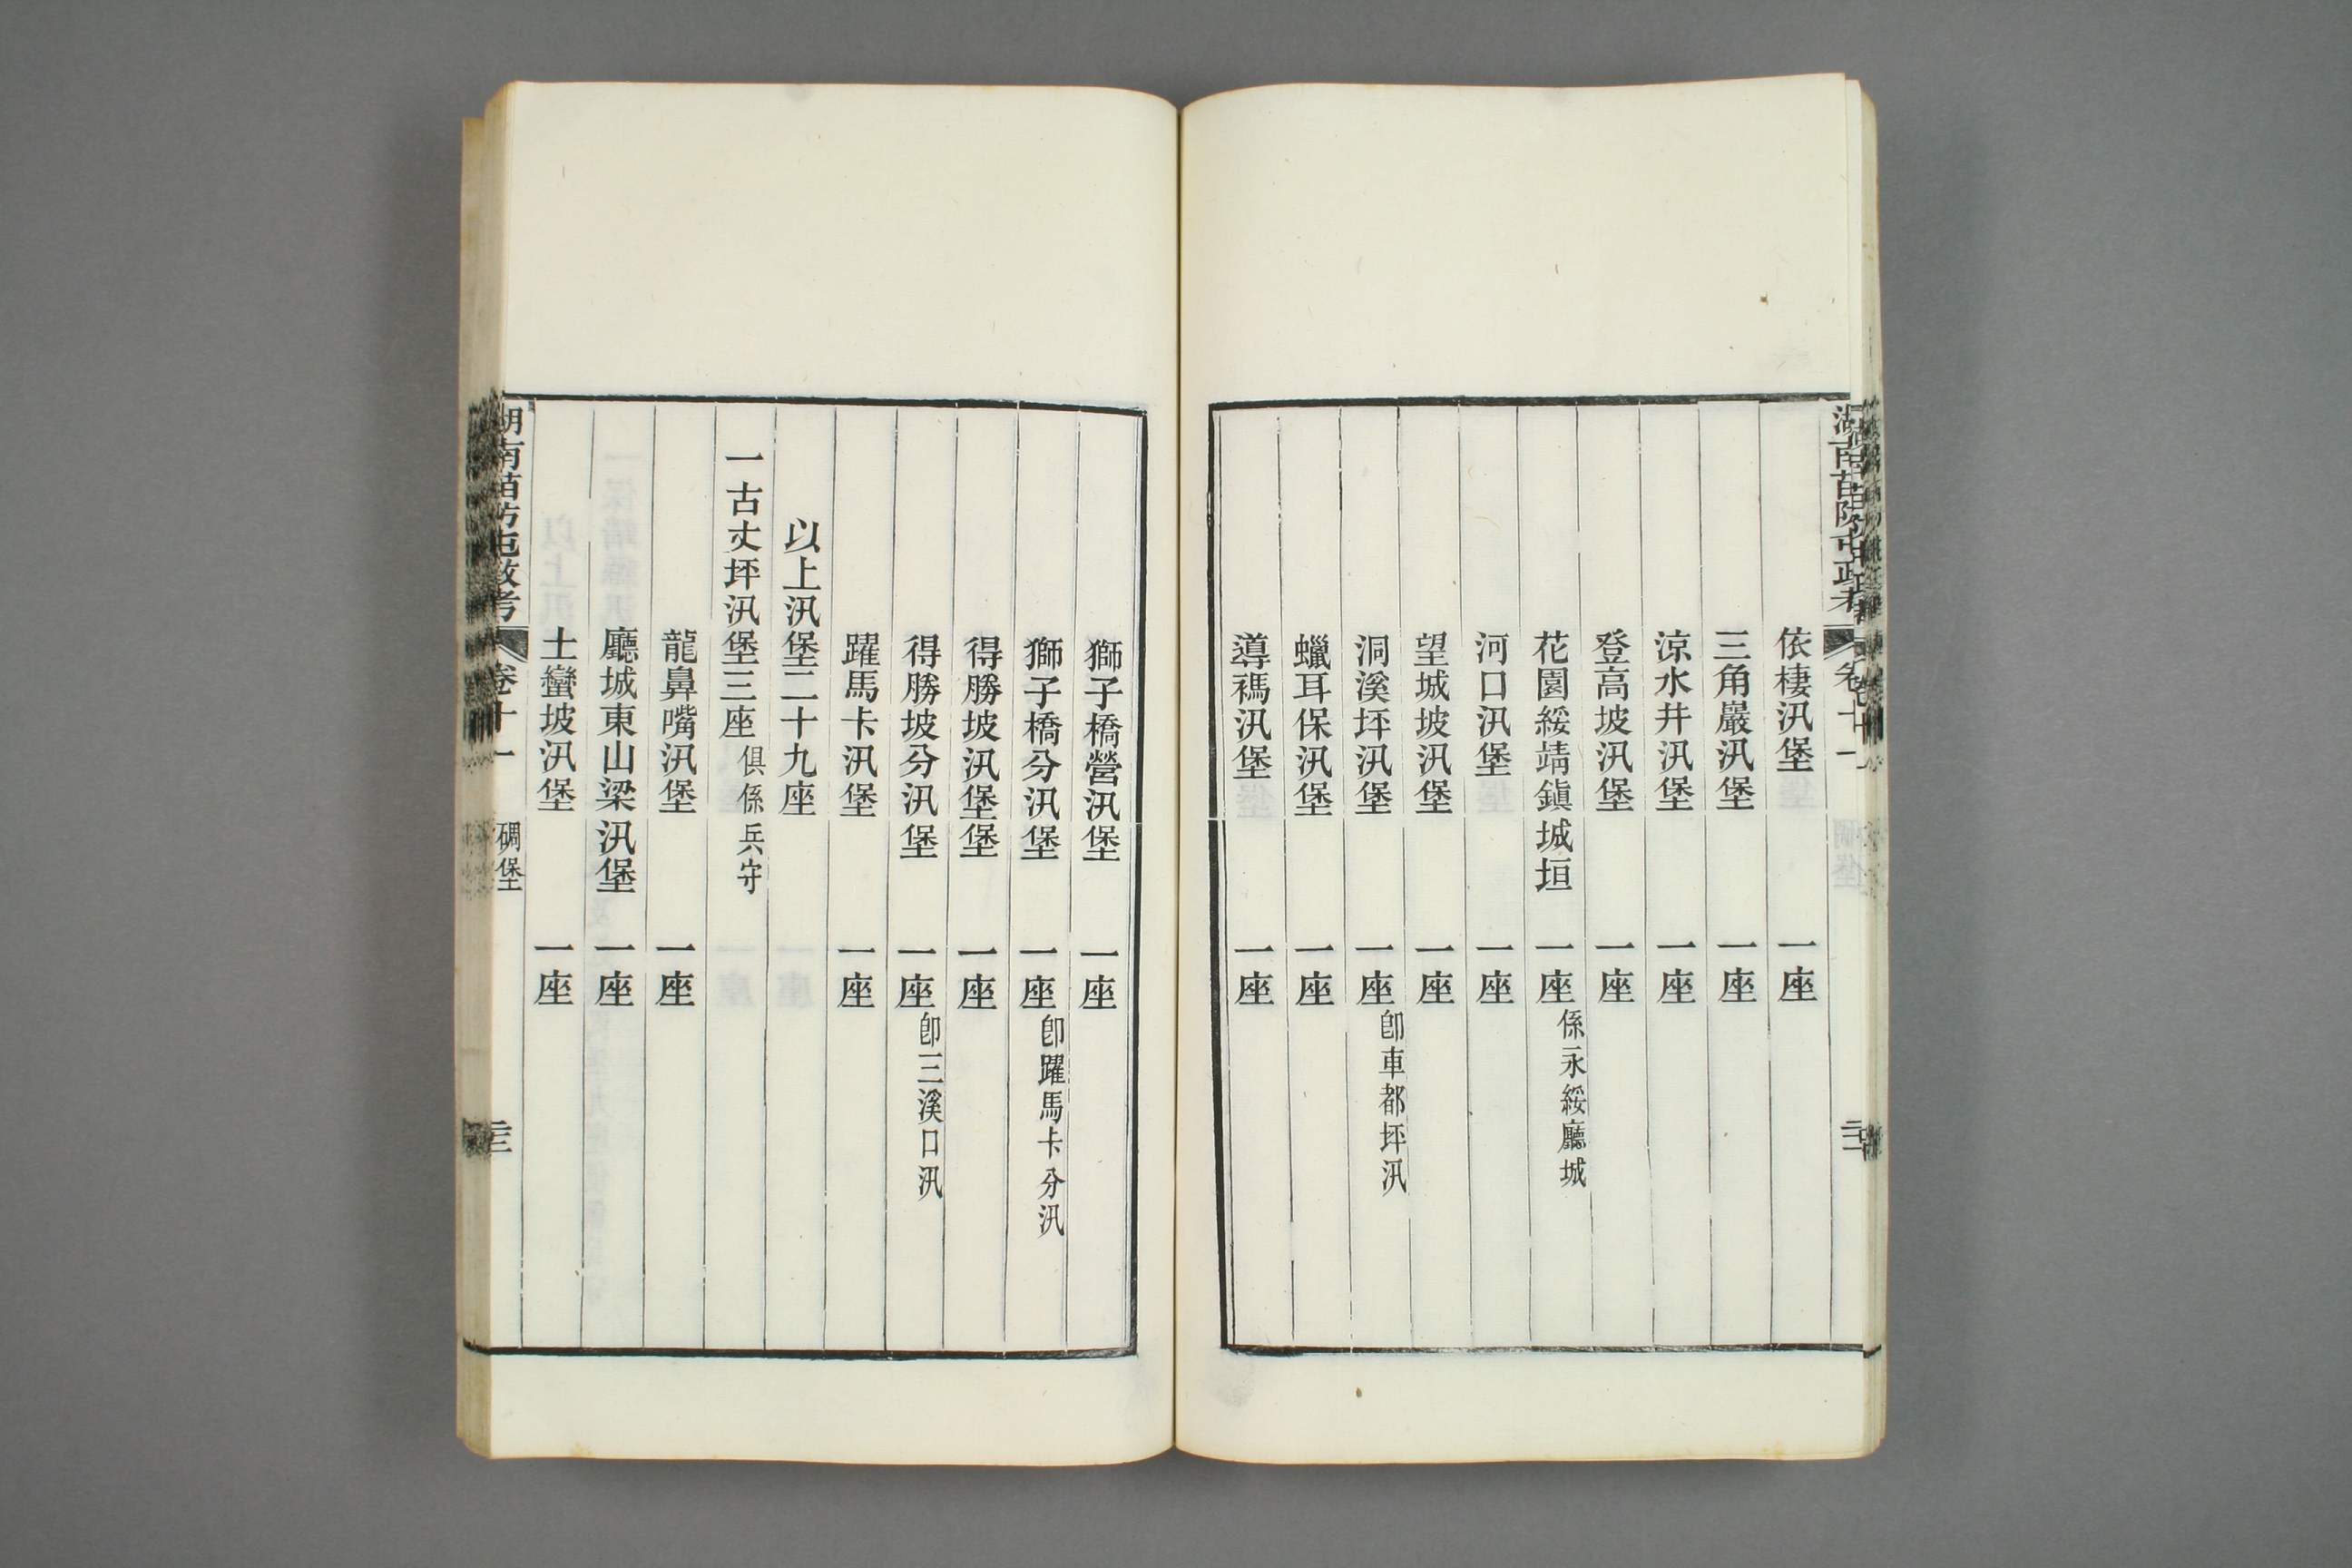 湖南苗防屯政考 卷十一
依棲汛堡 一座
三角巖汛堡 一座
涼水井汛堡 一座
登高坡汛堡 一座
花園綏靖鎮城垣 一座 係永綏廳城
河口汛堡 一座
望城坡汛堡 一座
洞溪坪汛堡 一座 卽車都坪汛
蠟耳保汛堡 一座
導禡汛堡 一座
獅子橋營汛堡 一座
獅子橋分汛堡 一座 卽躍馬卡分汛
得勝坡汛堡堡 一座
得勝坡分汛堡 一座 卽三溪口汛
躍馬卡汛堡 一座
以上汛堡二十九座
一古丈坪汛堡三座 俱係兵守
龍鼻嘴汛堡 一座
廳城東山梁汛堡 一座
土蠻坡汛堡 一座
湖南苗防屯政考 卷十一 碉堡